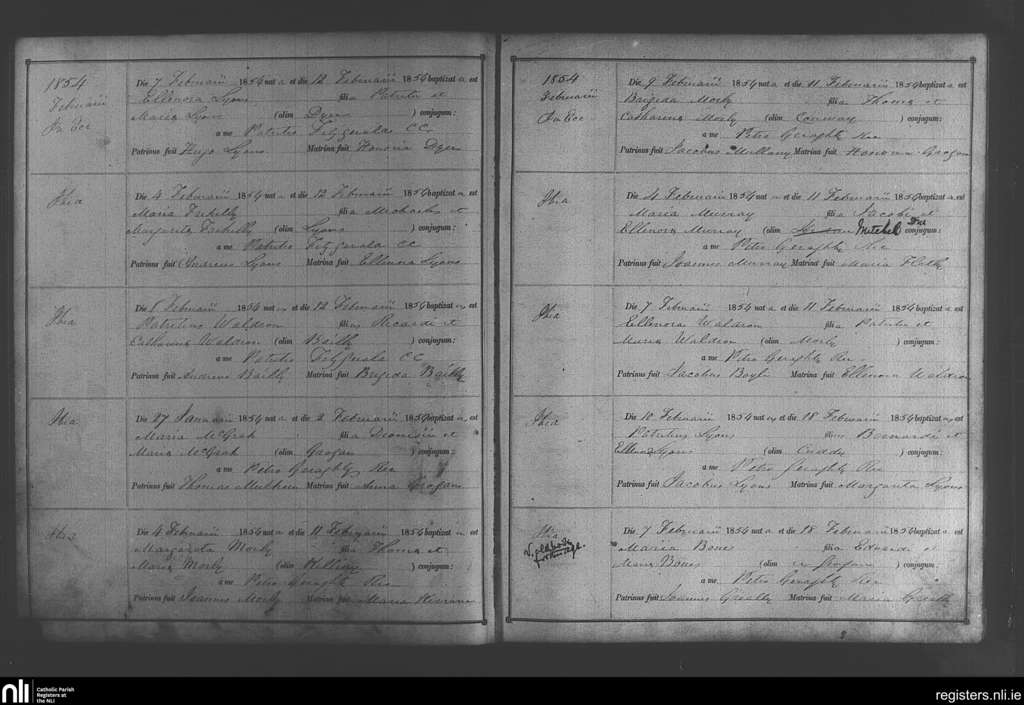 1854
Februarii
In Ecc
Die 7 Februarii 1854 nat a et die 12 Februarii 1854 baptizat a est
Ellenora Lyons fili a Patritii et
Maria Lyons (olim Dyer ) conjugum:
a me Patritio Fitzgerald CC
Patrinus fuit Hugo Lyons Matrina fuit Honoria Dyer
Ibia
Die 4 Februarii 1854 nat a et die 12 Februarii 1854 baptizat a est
Maria fili a Michaelis et
Margarita (olim Lyons ) conjugum:
a me Patritio Fitzgerald CC
Patrinus fuit Andreas Lyons Matrina fuit Ellenora Lyons
Ibia
Die 8 Februarii 1854 nat us et die 12 Februarii 1854 baptizat us est
Patritius Waldron fili us Ricardi et
Catharina Waldron (olim Bailly ) conjugum:
a me Patritio Fitzgerald CC
Patrinus fuit Andreas Bailly Matrina fuit Brigida Bailly
Ibia
Die 27 Januarii 1854 nat a et die 2 Februarii 1854 baptizat a est
Maria McGrah fili a Dionisii et
Maria McGrah (olim Grogan ) conjugum:
a me Petro Geraghty Rec
Patrinus fuit Thomas Mulhern Matrina fuit Anna Grogan
Ibia
Die 4 Februarii 1854 nat a et die 11 Februarii 1854 baptizat a est
Margarita Morly fili a Thoma et
Maria Morly (olim ) conjugum:
a me Petro Geraghty Rec
Patrinus fuit Joannes Morly Matrina fuit Maria
1854
Februarii
In Ecc
Die 9 Februarii 1854 nat a et die 11 Februarii 1854 baptizat a est
Brigida Morly fili a Thoma et
Catharina Morly (olim Conway ) conjugum:
a me Petro Geraghty Rec
Patrinus fuit Jacobus Mullany Matrina fuit Honoria Grogan
Ibia
Die 4 Februarii 1854 nat a et die 11 Februarii 1854 baptizat a est
Maria Murray fili a Jacobi et
Ellenora Murray (olim Mitchel ) conjugum:
a me Petro Geraghty Rec
Patrinus fuit Joannes Murray Matrina fuit Maria Flatly
Ibia
Die 7 Februarii 1854 nat a et die 11 Februarii 1854 baptizat a est
Ellenora Waldron fili a Patritii et
Maria Waldron (olim Morly ) conjugum:
a me Petro Geraghty Rec
Patrinus fuit Jacobus Boyle Matrina fuit Ellenora Waldron
Ibia
Die 10 Februarii 1854 nat us et die 18 Februarii 1854 baptizat us est
Patritius Lyons fili us Bernardi et
Ellena Lyons (olim Cuddy ) conjugum:
a me Petro Geraghty Rec
Patrinus fuit Jacobus Lyons Matrina fuit Margarita Lyons
Ibia
Die 7 Februarii 1854 nat a et die 18 Februarii 1854 baptizat a est
Maria Bones fili a Eduardi et
Maria Bones (olim Grogan ) conjugum:
a me Petro Geraghty Rec
Patrinus fuit Joannes Greally Matrina fuit Maria Greally
nli
Catholic Parish
Registers at
the NLI
registers.nli.ie